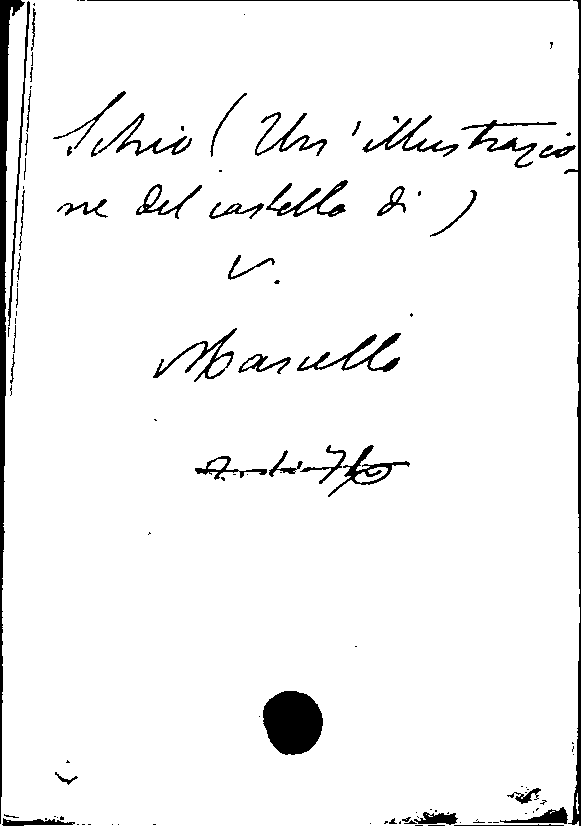 Schio (Un'illustrazio-
ne del castello di)
V.
Marcello